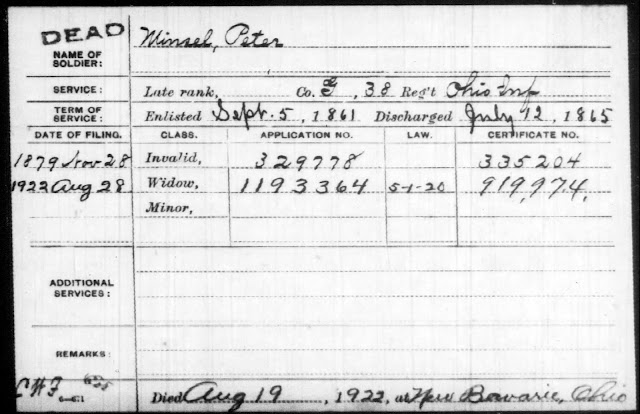 DEAD
NAME OF SOLDIER: Minsel, Peter
SERVICE: Late rank, Co. G, 38 Reg't Ohio Inf
TERM OF SERVICE: Enlisted Sept. 5, 1861 Discharged July 12, 1865
DATE OF FILING. CLASS. APPLICATION NO. LAW. CERTIFICATE NO.
1879 Nov 28 Invalid, 329778 335204
1922 Aug 28 Widow, 1193364 5-1-20 919,974.
Minor,
ADDITIONAL SERVICES:
REMARKS:
Died Aug 19, 1922, at New Bavarie, Ohio